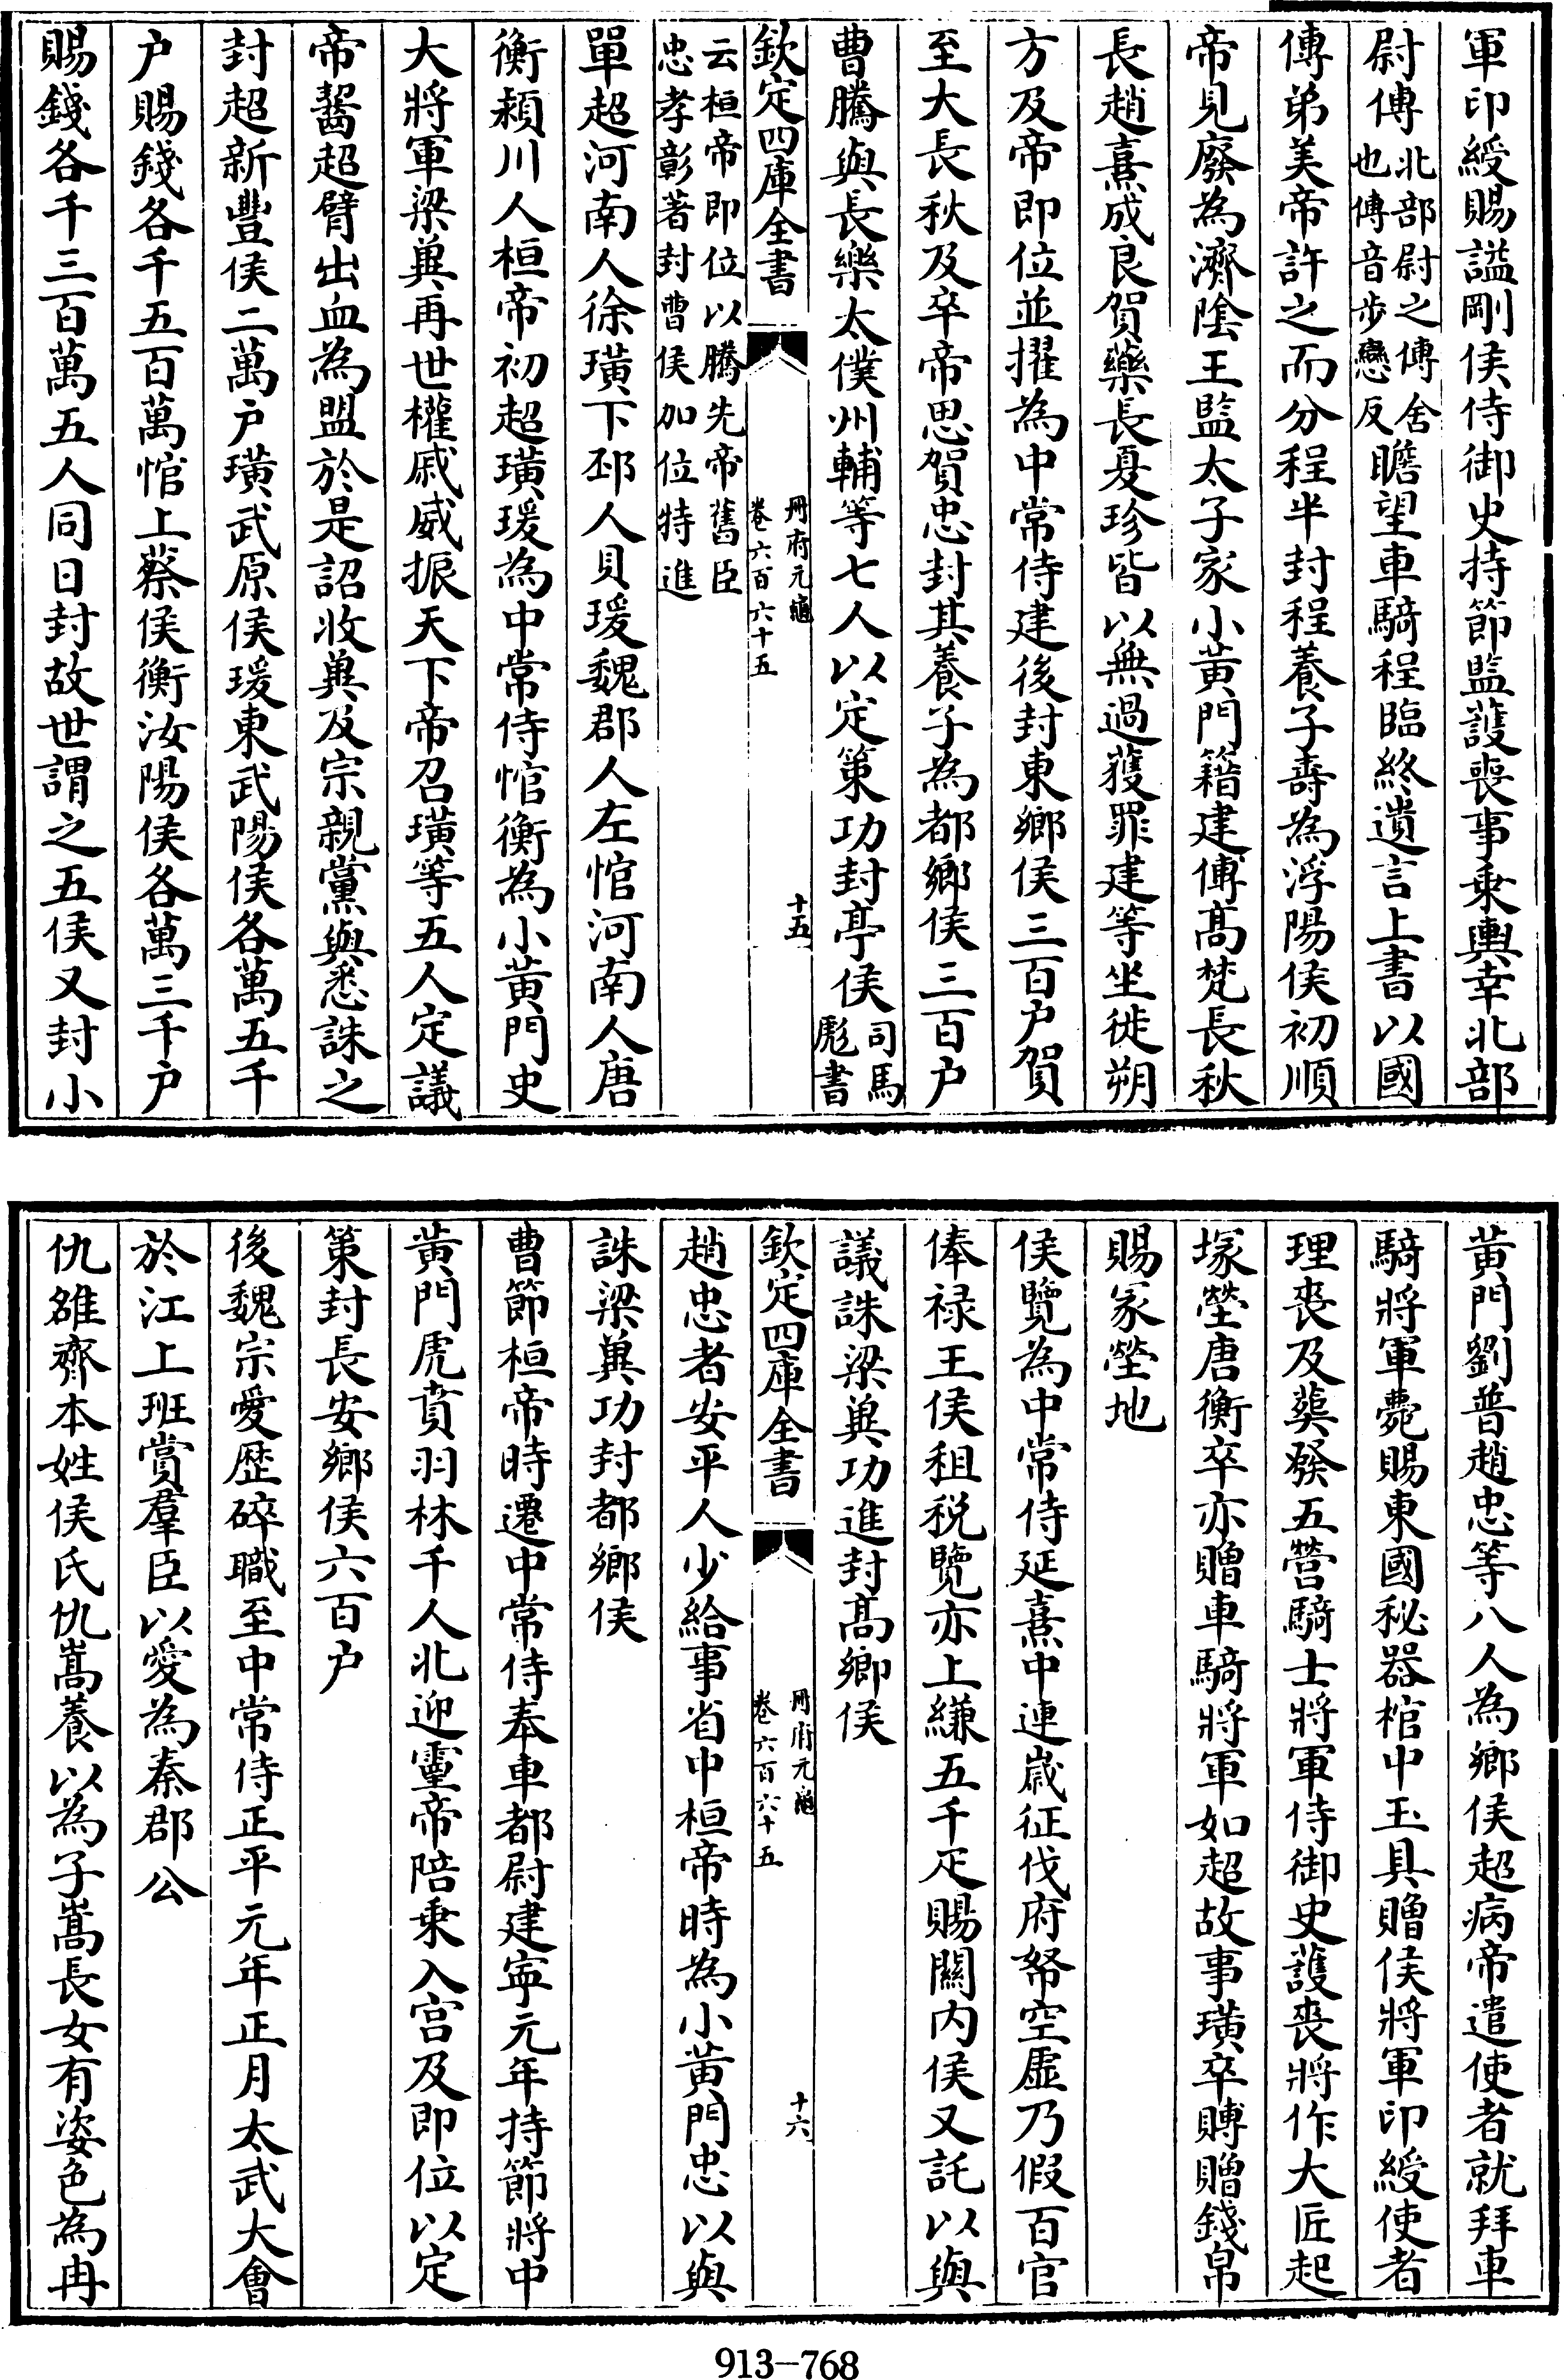 軍印綬賜謚剛侯侍御史持節監䕶喪事乘輿幸北部
尉傅北部尉之傅舍也傅音步戀反瞻望車騎程臨終遺言上書以國
傅弟美帝許之而分程半封程養子壽為浮陽侯初順
帝見廢為濟隂王監太子家小黄門籍建傅髙梵長秋
長趙熹成良賀藥長夏珍皆以無過獲罪建等坐徙朔
方及帝即位並擢為中常侍建後封東鄉侯三百户賀
至大長秋及卒帝思賀忠封其養子為都鄉侯三百户
曹騰與長樂太僕州輔等七人以定策功封亭侯司馬彪書
欽定四庫全書
冊府元龜
卷六百六十五
十五
云桓帝即位以騰先帝舊臣忠孝彰著封曹侯加位特進
單超河南人徐璜下邳人貝瑗魏郡人左悺河南人唐
衡潁川人桓帝初超璜瑗為中常侍悺衡為小黄門史
大將軍梁兾再世權戚威振天下帝召璜等五人定議
帝齧超臂出血為盟於是詔收兾及宗親黨與悉誅之
封超新豐侯二萬户璜武原侯瑗東武陽侯各萬五千
户賜錢各千五百萬悺上蔡侯衡汝陽侯各萬三千户
賜錢各千三百萬五人同日封故世謂之五侯又封小
黄門劉普趙忠等八人為鄉侯超病帝遣使者就拜車
騎將軍薨賜東國秘器棺中玉具贈侯將軍印綬使者
理喪及葬發五營騎士將軍侍御史護喪將作大匠起
塚塋唐衡卒亦贈車騎將軍如超故事璜卒賻贈錢帛
賜冢塋地
侯覽為中常侍延熹中連歲征伐府帑空虛乃假百官
俸禄王侯租税覽亦上縑五千疋賜關内侯又託以與
議誅梁兾功進封髙鄉侯
欽定四庫全書
冊府元龜
卷六百六十五
十六
趙忠者安平人少給事省中桓帝時為小黄門忠以與
誅梁兾功封都鄉侯
曹節桓帝時遷中常侍奉車都尉建寧元年持節將中
黄門虎賁羽林千人北迎靈帝陪乗入宫及即位以定
策封長安鄉侯六百户
後魏宗愛歴碎職至中常侍正平元年正月太武大會
於江上班賞羣臣以愛為秦郡公
仇雒齊本姓侯氏仇嵩養以為子嵩長女有姿色為冉
913-768